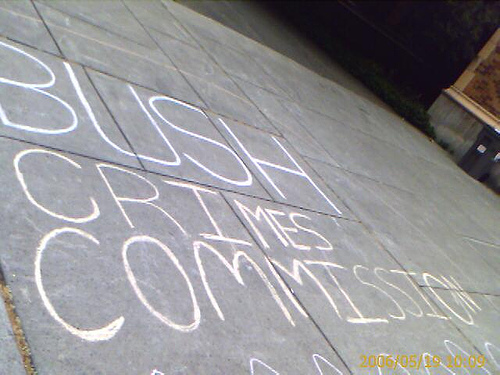 BUSH
CRIMES
COMMISSION
2006/05/19 10:09